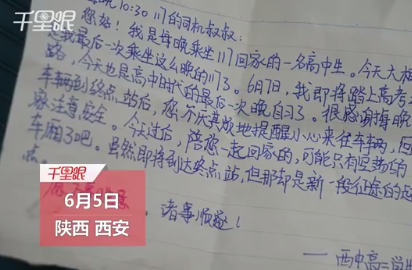 千里眼
晚10:30 川的司机叔叔:
您好! 我是每晚乘坐川回家的一名高中生。今天大概
我最后一次乘坐这么晚的川了。6月7日,我即将踏上高考
路,今天也是高中时代的最后一次晚自习了。很感谢每晚
车辆到终点站后,您不厌其烦地提醒小心来往车辆,回
家注意安全。今天过后,陪您一起回家的,可能只有
车厢了吧。虽然即将到达终点站,但那却是新一段征途的起
点。
诸事顺遂!
——西中高三学
千里眼
6月5日
陕西 西安